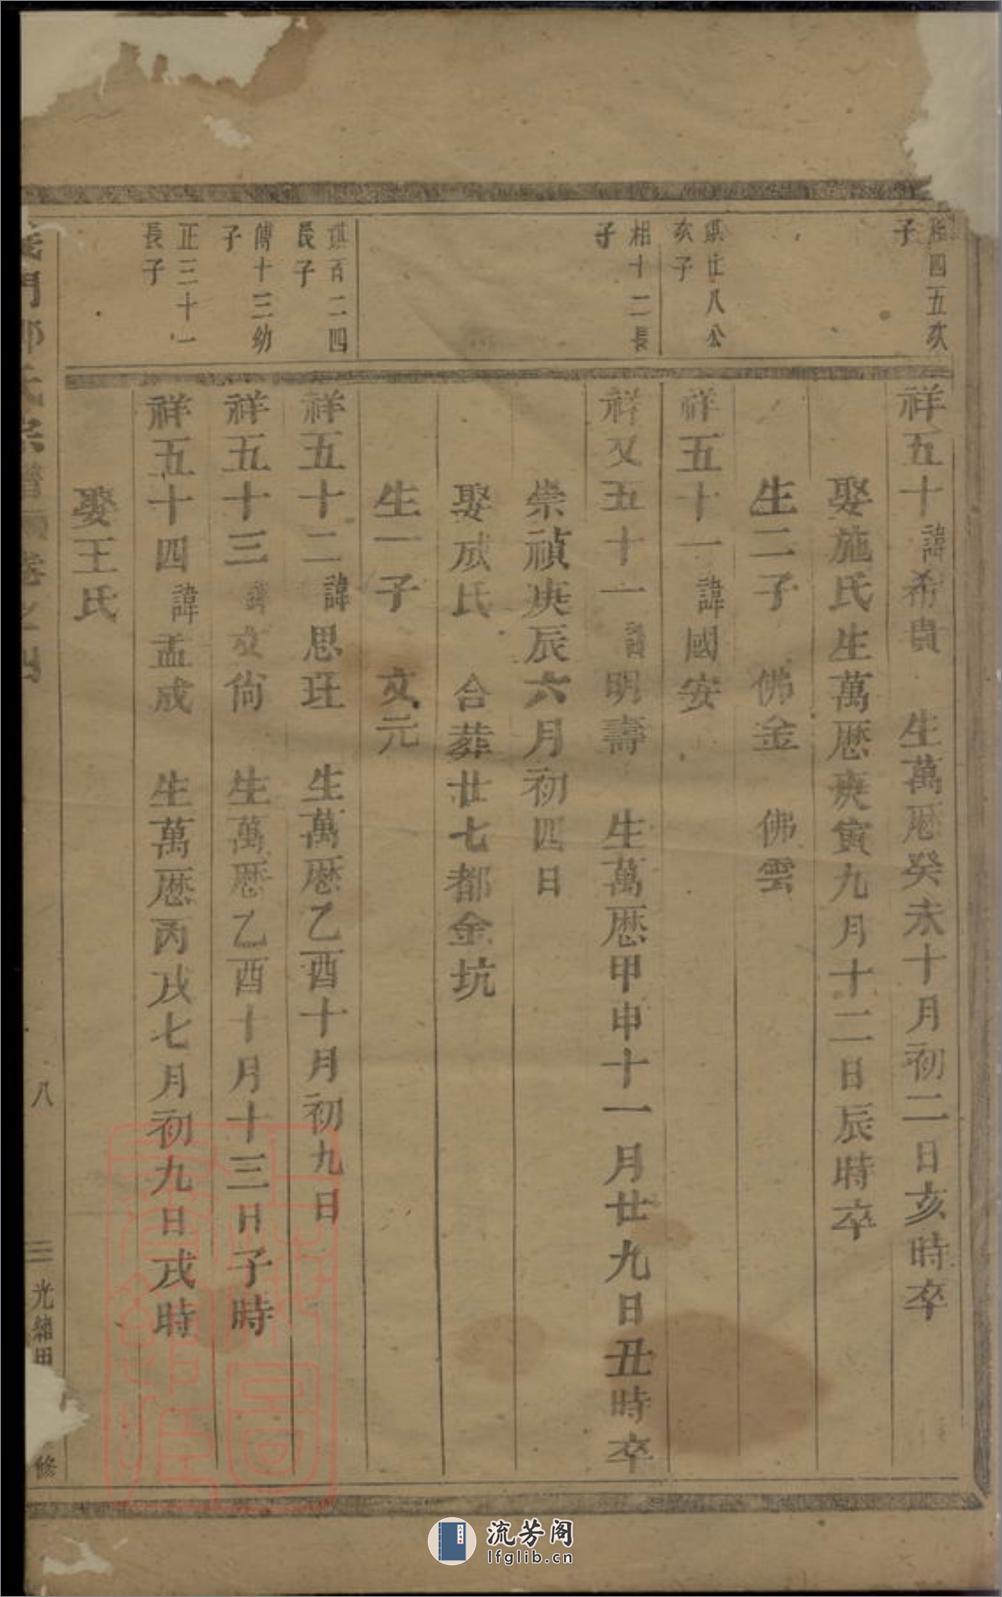 相四五次
子
祥五十諱希貴　生萬厯癸未十月初二日亥時卒
娶施氏生萬厯庚寅九月十二日辰時卒
生二子　佛金　佛雲
祺廿八公
次子
祥五十一諱國安
相十二長
子
祥又五十一諱明壽　生萬厯甲申十一月廿九日丑時卒
崇禎庚辰六月初四日
娶成氏　合葬廿七都金坑
生一子　文元
祺百二四
長子
祥五十二諱思玨　生萬厯乙酉十月初九日
傳十三幼
子
祥五十三諱文尙　生萬厯乙酉十月十三日子時
正三十一
長子
祥五十四諱孟成　生萬厯丙戌七月初九日戌時
娶王氏
義門鄭氏宗譜 卷之四
八
光緒甲
修
流芳阁
lfglib.cn